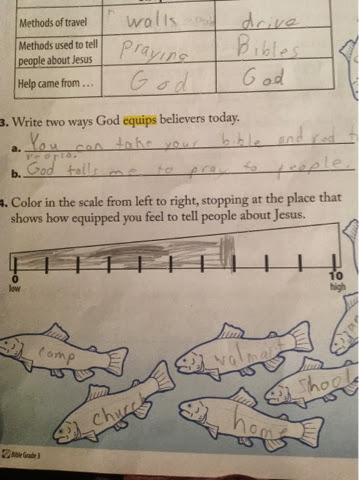 Methods of travel walls drive
Methods used to tell
people about Jesus Praying Bibles
Help came from ... God God
3. Write two ways God equips believers today.
a. You can take your bible and red t
people.
b. God tells me to pray to people.
4. Color in the scale from left to right, stopping at the place that
shows how equipped you feel to tell people about Jesus.
0 10
low high
camp walmart
church home Shool
Bible Grade 3